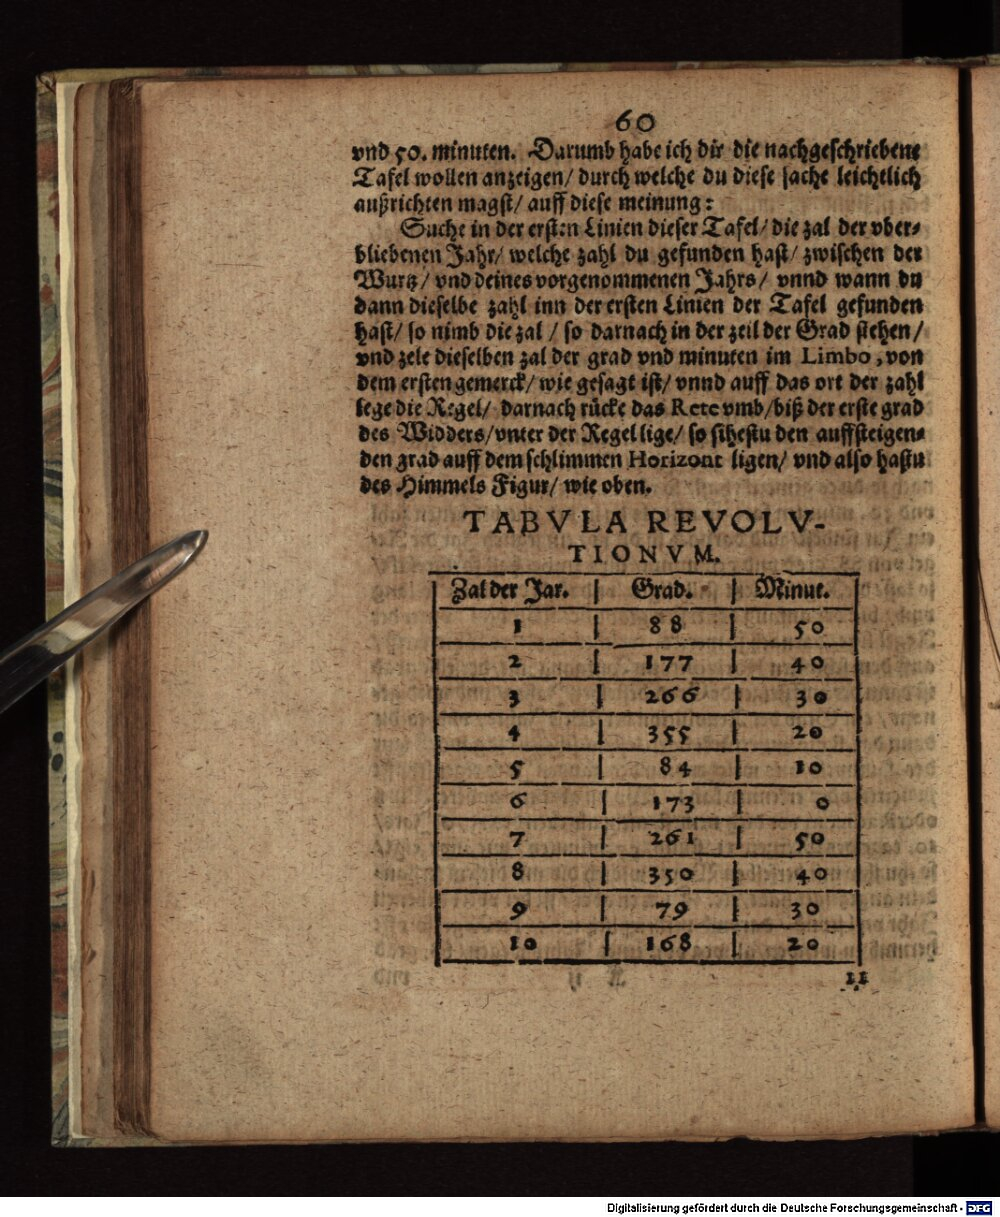 60
vnd 50. minuten. Darumb habe ich dir die nachgeschriebene
Tafel wollen anzeigen/ durch welche du diese sache leichtlich
außrichten magst/ auff diese meinung:
Suche in der ersten Linien dieser Tafel/ die zal der vber-
bliebenen Jahr/ welche zahl du gefunden hast/ zwischen der
Wurtz/ vnd deines vorgenommenen Jahrs/ vnnd wann du
dann dieselbe zahl inn der ersten Linien der Tafel gefunden
hast/ so nimb die zal / so darnach in der zeil der Grad stehen/
vnd zele dieselben zal der grad vnd minuten im Limbo, von
dem ersten gemerck/ wie gesagt ist/ vnnd auff das ort der zahl
lege die Regel/ darnach rücke das Rete vmb/ biß der erste grad
des Widders/ vnter der Regel lige/ so sihestu den auffsteigen-
den grad auff dem schlimmen Horizont ligen/ vnd also hastu
des Himmels Figur/ wie oben.
TABVLA REVOLV-
TIONVM.
Zal der Jar. | Grad. | Minut.
1 | 88 | 50
2 | 177 | 40
3 | 266 | 30
4 | 355 | 20
5 | 84 | 10
6 | 173 | 0
7 | 261 | 50
8 | 350 | 40
9 | 79 | 30
10 | 168 | 20
11
Digitalisierung gefördert durch die Deutsche Forschungsgemeinschaft - DFG